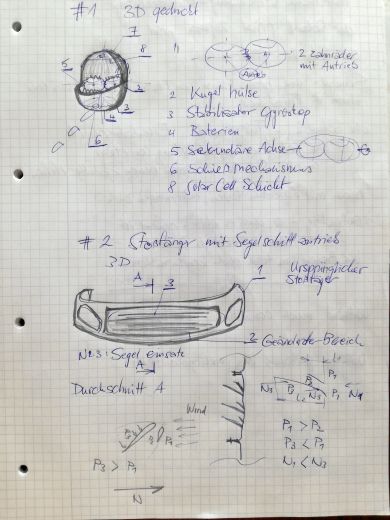 #1 3D gedruckt
7
8
5
3
4
6
2 Zahnräder
mit Antrieb
Antrieb
2 Kugel hülse
3 Stabilisator Gyroskop
4 Baterien
5 Sekundäre Achse
6 Schiessmechanismus
8 Solar Cell Schicht
#2 Stosfänger mit Segelschiffantrieb
3D
A
3
1
Ursprünglicher
2 Geänderte Bereich
Nr3: Segel einsatz
A
Durchschnitt A
Wind
P1
P3 > P1
N
P1
N3
P1 > P2
P3 < P1
N1 < N3